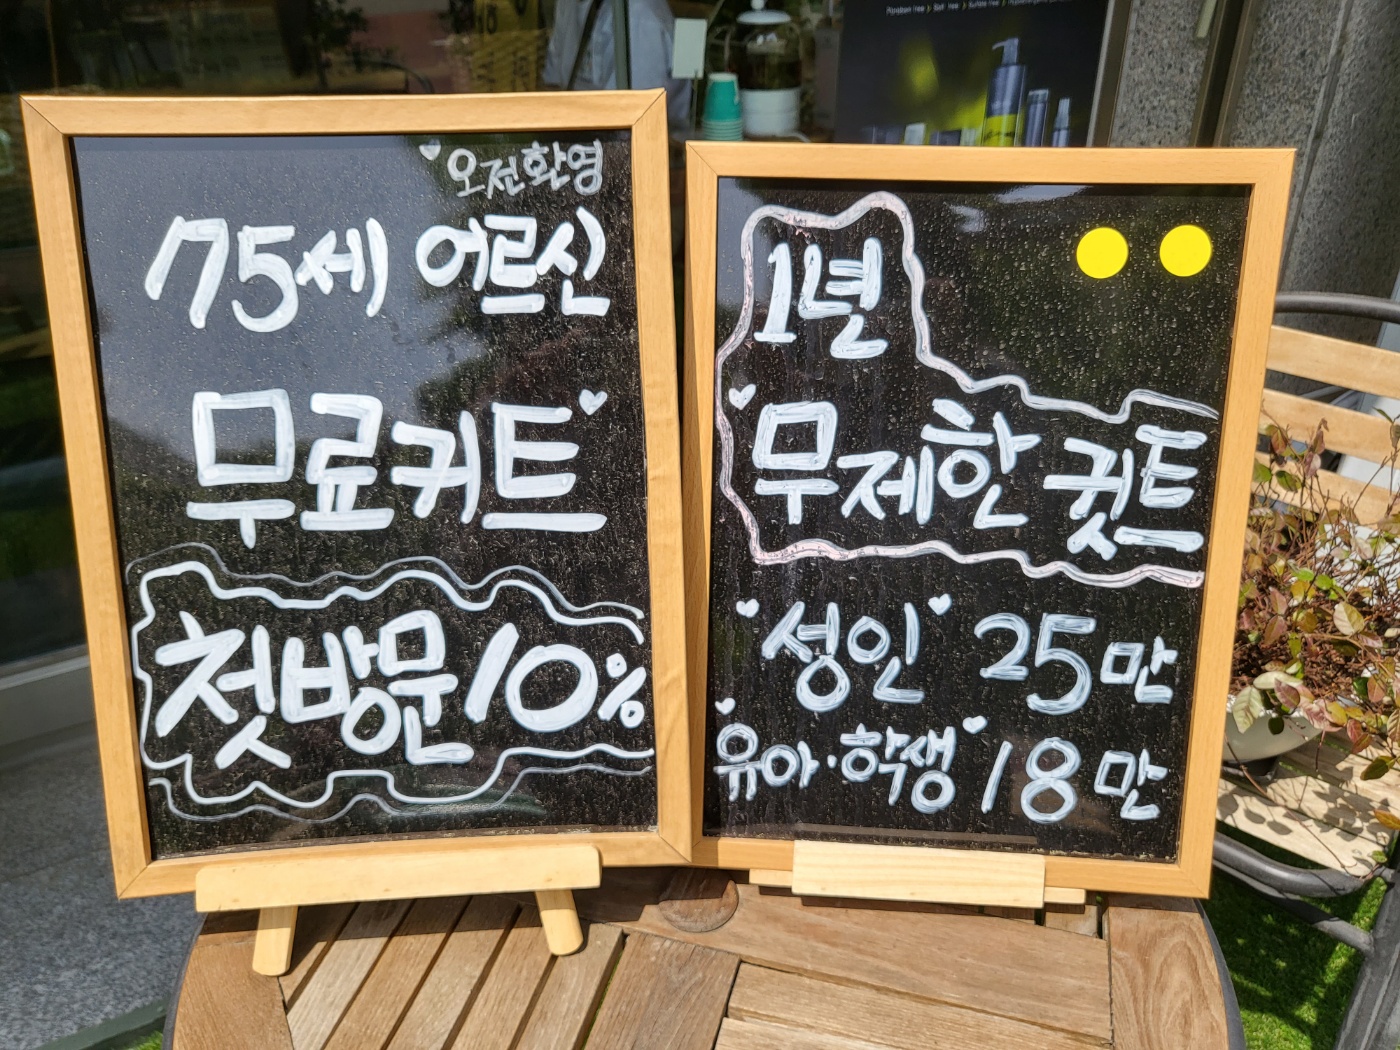 오전환영
75세 어르신
무료커트
첫방문 10%
1년
무제한 컷트
성인 25만
유아·학생 18만